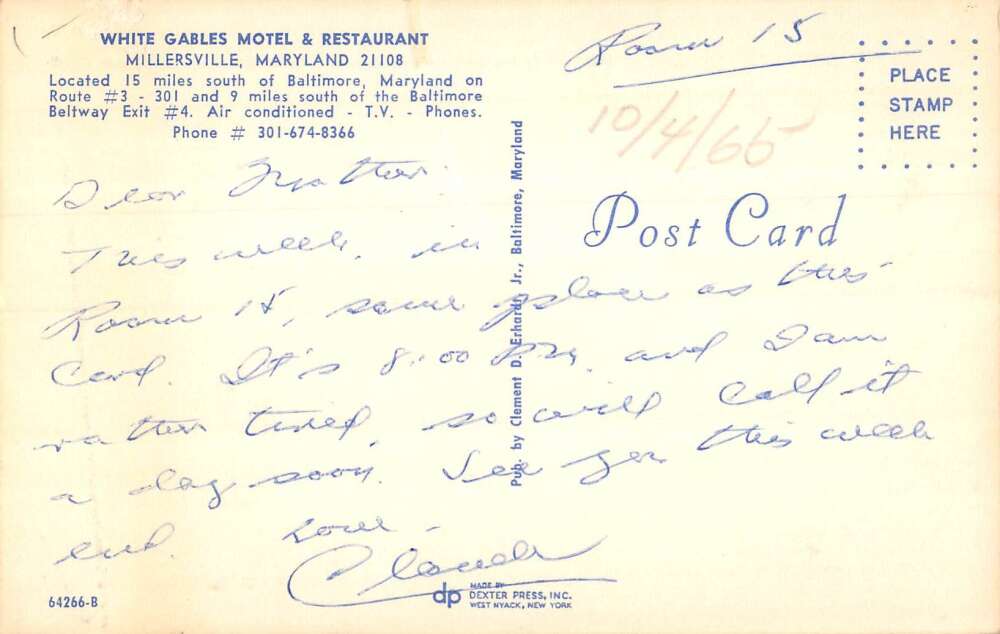 WHITE GABLES MOTEL & RESTAURANT
MILLERSVILLE, MARYLAND 21108
Located 15 miles south of Baltimore, Maryland on
Route #3 - 301 and 9 miles south of the Baltimore
Beltway Exit #4. Air conditioned - T.V. - Phones.
Phone # 301-674-8366
Room 15
10/4/65
PLACE
STAMP
HERE
Post Card
Pub. by Clement D. Erhardt, Jr., Baltimore, Maryland
Dear Mother.
This week, in
Room 15, same place as this
Card. It's 8:00 PM, and I am
rather tired, so will call it
a day soon. See you this week
end. Love -
Claude
64266-B
dp MADE BY
DEXTER PRESS, INC.
WEST NYACK, NEW YORK